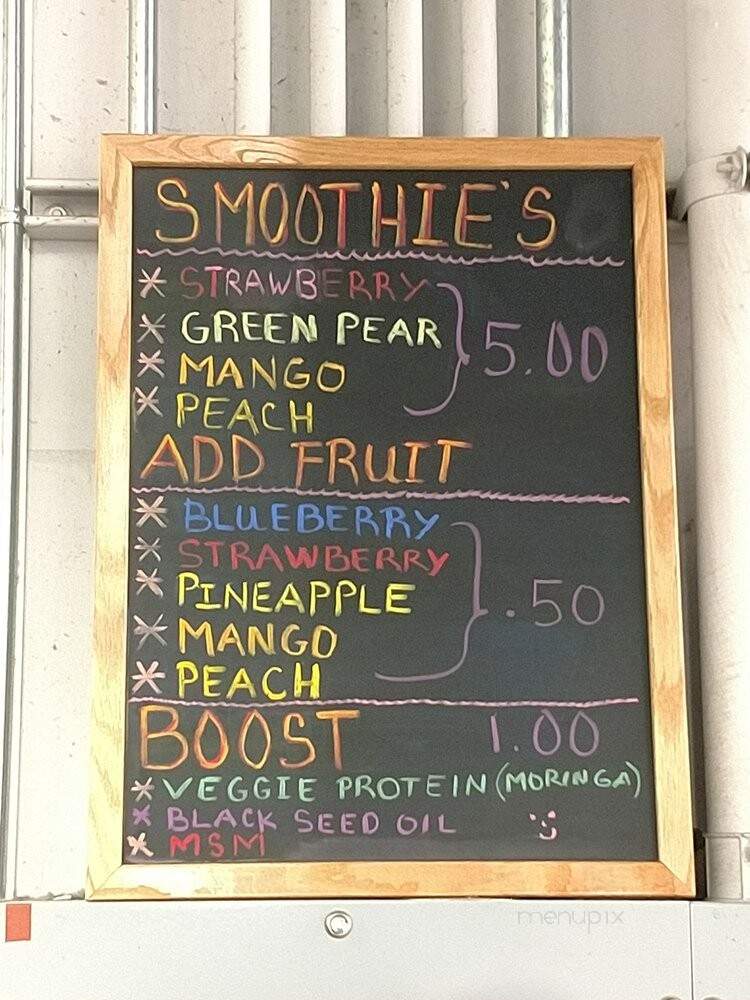 SMOOTHIE'S
* STRAWBERRY
* GREEN PEAR
* MANGO
* PEACH
5.00
ADD FRUIT
* BLUEBERRY
* STRAWBERRY
* PINEAPPLE
* MANGO
* PEACH
.50
BOOST 1.00
* VEGGIE PROTEIN (MORINGA)
* BLACK SEED OIL
* MSM
menupix